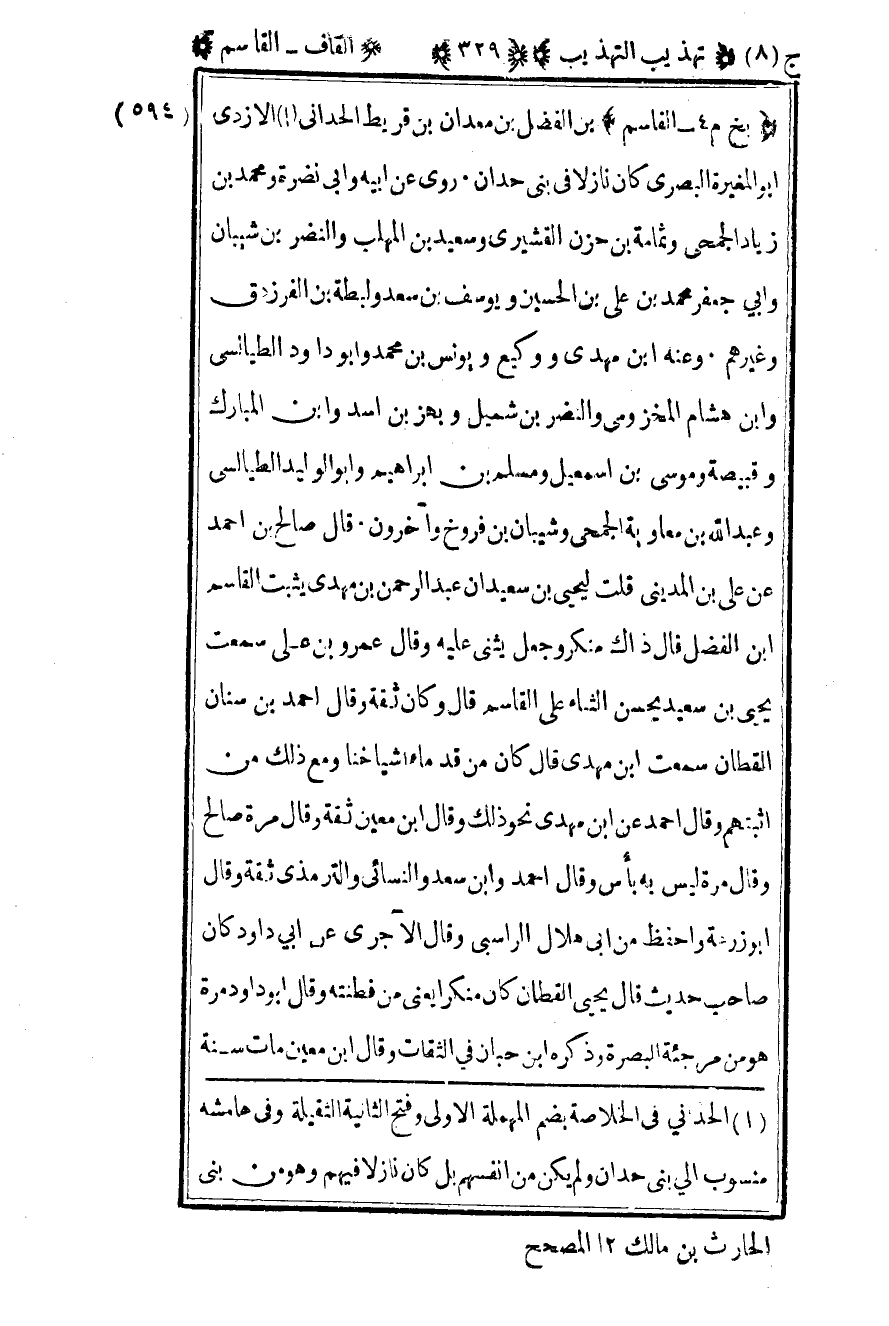 ج (٨) ﴿ تهذيب التهذيب ﴾ ﴿ ٣٢٩ ﴾ ﴿ القاف - القاسم ﴾
﴿ بخ م ٤ - القاسم ﴾ بن الفضل بن معدان بن قريط الحدانى (١) الازدى (٥٩٤)
ابو المغيرة البصرى كان نازلا فى بنى حدان . روى عن ابيه وابى نضرة ومحمد بن
زياد الجمحى وثمامة بن حزن القشيرى وسعيد بن المهلب والنضر بن شيبان
وابي جعفر محمد بن على بن الحسين ويوسف بن سعد ولبطة بن الفرزدق
وغيرهم . وعنه ابن مهدى ووكيع ويونس بن محمد وابو داود الطيانسى
وابن هشام المخزومى والنضر بن شميل وبهز بن اسد وابن المبارك
وقبيصة وموسى بن اسمعيل ومسلم بن ابراهيم وابو الوليد الطيالسى
وعبد الله بن معاوية الجمحى وشيبان بن فروخ وآخرون . قال صالح بن احمد
عن على بن المدينى قلت ليحيى بن سعيد ان عبد الرحمن بن مهدى يثبت القاسم
ابن الفضل قال ذاك منكر وجعل يثنى عليه وقال عمرو بن على سمعت
يحيى بن سعيد يحسن الثناء على القاسم قال وكان ثقة وقال احمد بن سنان
القطان سمعت ابن مهدى قال كان من قدماء اشياخنا ومع ذلك من
اثبتهم وقال احمد عن ابن مهدى نحو ذلك وقال ابن معين ثقة وقال مرة صالح
وقال مرة ليس به بأس وقال احمد وابن سعد والنسائى والترمذى ثقة وقال
ابو زرعة واحفظ من ابى هلال الراسبى وقال الآجرى عن ابي داود كان
صاحب حديث قال يحيى القطان كان منكرا يعنى من فطنته وقال ابو داود مرة
هو من مرجئة البصرة وذكره ابن حبان في الثقات وقال ابن معين مات سنة
(١) الحدّني فى الخلاصة بضم المهملة الاولى وفتح الثانية الثقيلة وفى هامشه
منسوب الي بنى حدان ولم يكن من انفسهم بل كان نازلا فيهم وهو من بنى
الحارث بن مالك ١٢ المصحح